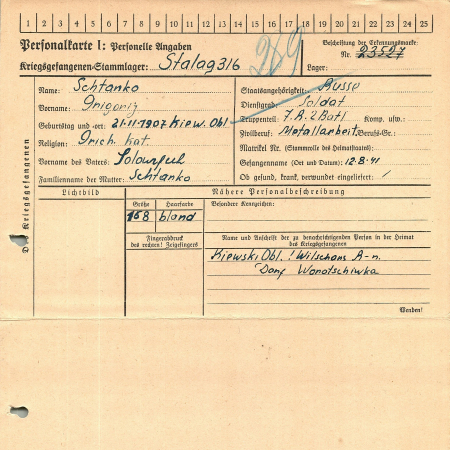 1 2 3 4 5 6 7 8 9 10 11 12 13 14 15 16 17 18 19 20 21 22 23 24 25
Personalkarte I: Personelle Angaben
Kriegsgefangenen-Stammlager: Stalag 316
289
Beschriftung der Erkennungsmarke:
Nr. 23527
Lager:
Des Kriegsgefangenen
Name: Schtanko
Vorname: Grigorij
Geburtstag und -ort: 21.11.1907 Kiew. Obl.
Religion: Griech. kat.
Vorname des Vaters:
Familienname der Mutter: Schtanko
Staatsangehörigkeit: Russe
Dienstgrad: Soldat
Truppenteil: 7.R. 2 Batl Komp. usw.:
Zivilberuf: Metallarbeit. Berufs-Gr.:
Matrikel Nr. (Stammrolle des Heimatstaates):
Gefangennahme (Ort und Datum): 12.8.41
Ob gesund, krank, verwundet eingeliefert: /
Lichtbild
Nähere Personalbeschreibung
Größe
Haarfarbe
Besondere Kennzeichen:
168
blond
Fingerabdruck
des rechten! Zeigefingers
Name und Anschrift der zu benachrichtigenden Person in der Heimat
des Kriegsgefangenen
Kiewski Obl. ! Wilschans R-n.
Dorf Worotschiwka
Wenden!